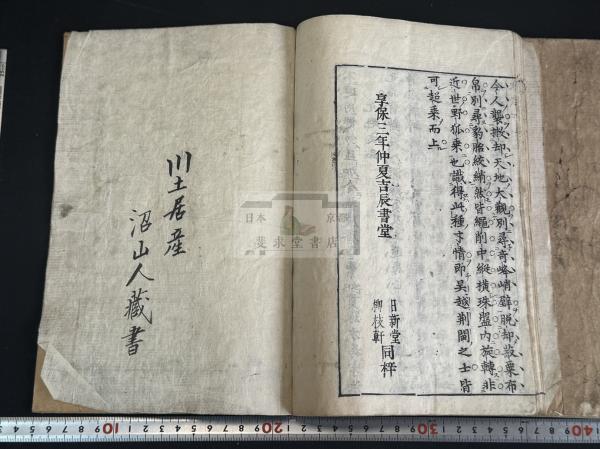 今人襲撒却天地大觀別尋奇峰峭壁脱却菽粟布
帛別尋豹胎絞綃然皆繩削中縱橫珠盤内旋轉非
近世野狐乘也識得此種亨情即吳越荆閩之士皆
可超乘而上
享保三年仲夏吉辰書堂
日新堂
柳枝軒
同梓
川土居産
沼山人藏書
日本
京都
斐求堂書店
10
20
30
40